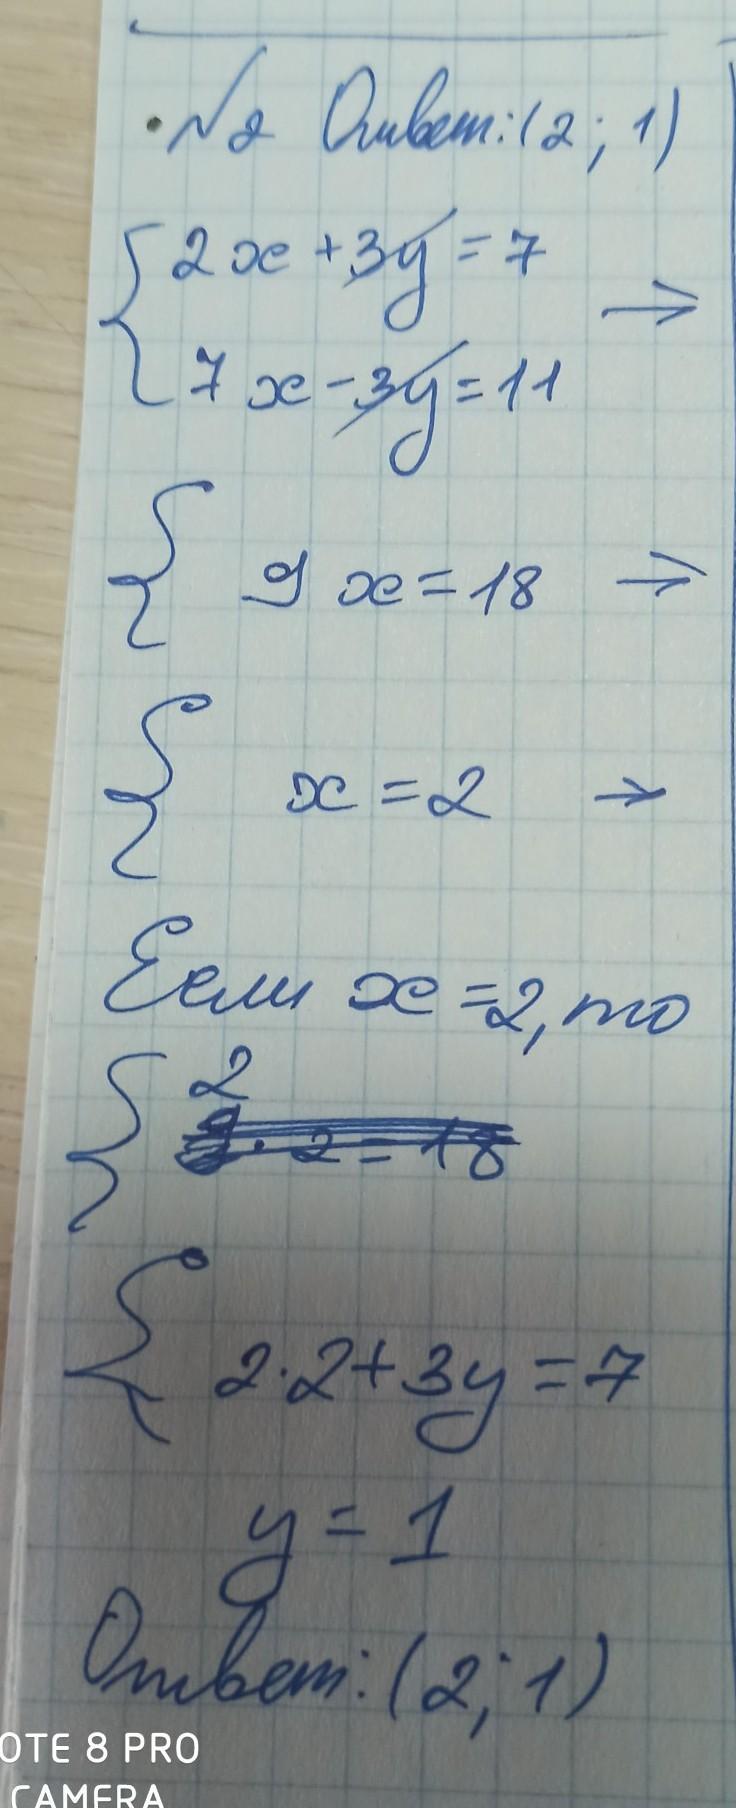 ·№2 Ответ:(2; 1)
2x+3y=7 →
7x-3y=11
9x=18 →
x=2 →
Если x=2, то
2
9·2=18
2·2+3y=7
y=1
Ответ:(2; 1)
OTE 8 PRO
CAMERA